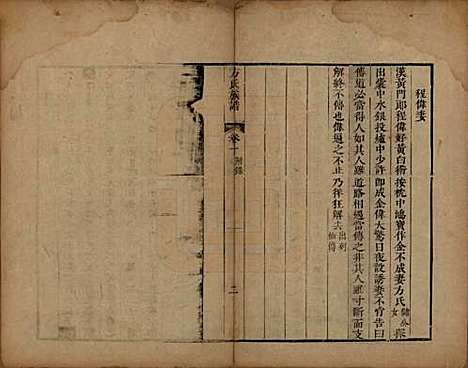 程偉妻
漢黃門郎程偉好黃白術按枕中鴻寶作金不成妻方氏儲公女探
出囊中水銀投爐中少許即成金偉大驚日夜說誘妻不肯告曰
傳道必當得人如其人雖道路相遇當傳之非其人雖寸斷而支
解終不傳也偉逼之不止乃佯狂解去出列仙傳
方氏族譜
卷一
附錄
二